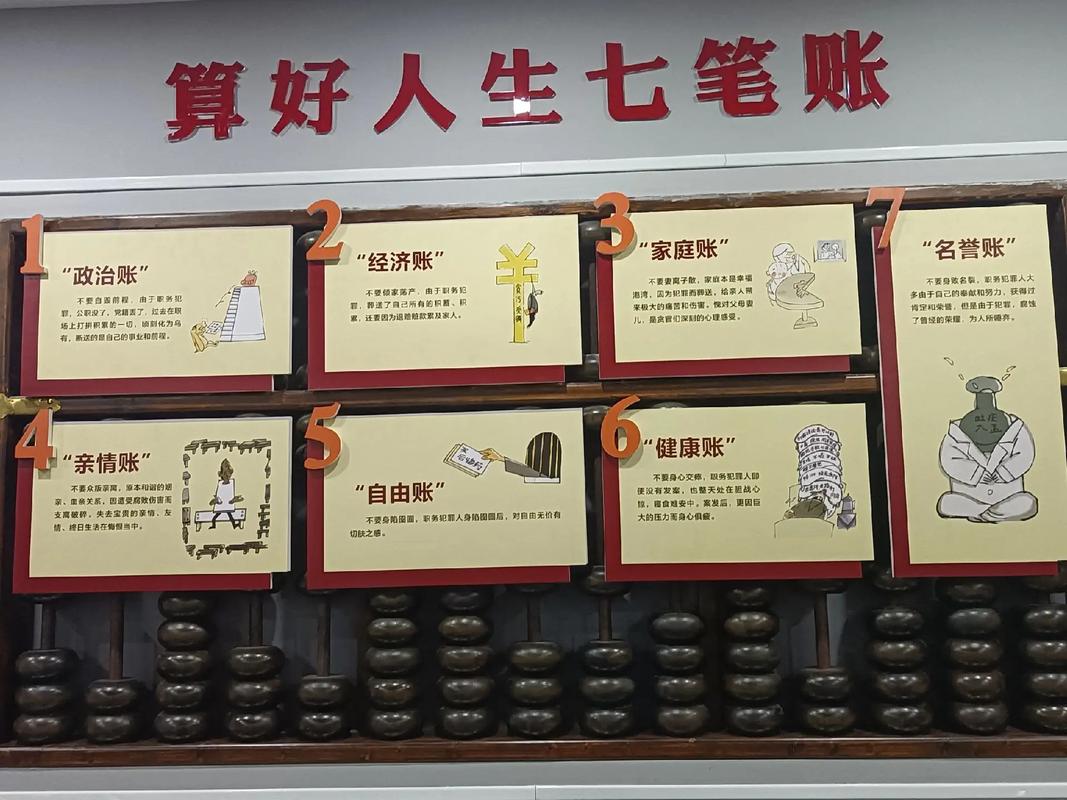 算好人生七笔账
1
“政治账”
不要自毁前程，由于职务犯
罪，公职没了，党籍丢了，过去在职
场上打拼积累的一切，顷刻化为乌
有，断送的是自己的事业和前程。
2
“经济账”
不要倾家荡产，由于职务犯
罪，葬送了自己所有的积蓄、积
累，还要因为退赔赃款累及家人。
3
“家庭账”
不要妻离子散，家庭本是幸福
港湾，因为犯罪而葬送，给亲人带
来极大的痛苦和伤害，愧对父母妻
儿，是贪官们深刻的心理感受。
4
“亲情账”
不要众叛亲离，原本和谐的姻
亲、血亲关系，因遭受腐败伤害而
支离破碎，失去宝贵的亲情、友
情、终日生活在悔恨当中。
5
“自由账”
不要身陷囹圄，职务犯罪人身陷囹圄后，对自由无价有
切肤之感。
6
“健康账”
不要身心交瘁，职务犯罪人即
使没有发案，也整天处在胆战心
惊，寝食难安中。案发后，更因巨
大的压力而身心俱疲。
7
“名誉账”
不要身败名裂，职务犯罪人大
多由于自己的奉献和努力，获得过
肯定和荣誉，但是由于犯罪，腐蚀
了曾经的荣耀，为人所唾弃。